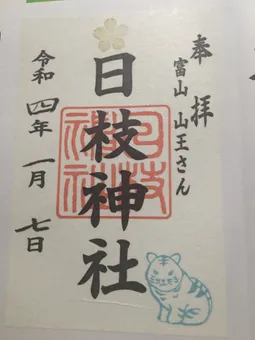 奉拝
富山 山王さん
日枝神社
日枝神社
令和四年一月七日